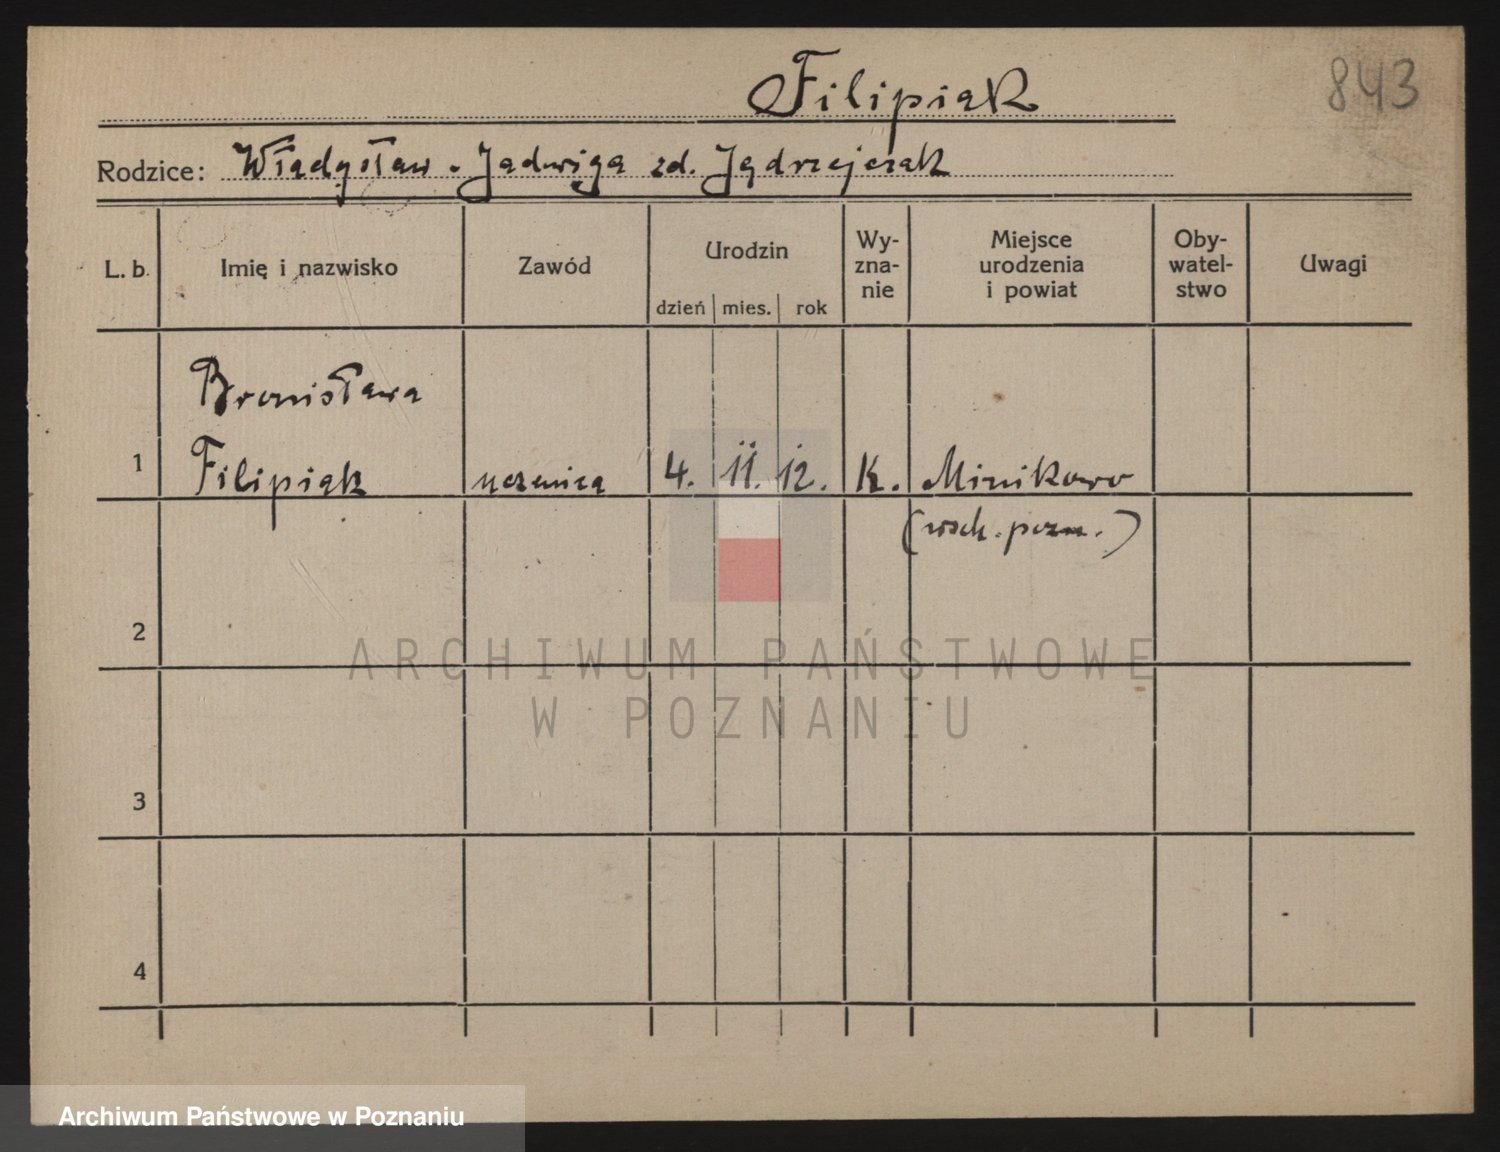 Filipiak
843
Rodzice: Władysław - Jadwiga zd. Jędrzejczak
L. b. Imię i nazwisko Zawód Urodzin dzień mies. rok Wy-zna-nie Miejsce urodzenia i powiat Oby-watel-stwo Uwagi
Bronisława
1 Filipiak uczenica 4. 11. 12. K. Minikowo
(wsch. pozn.)
2
ARCHIWUM PAŃSTWOWE
W POZNANIU
3
4
Archiwum Państwowe w Poznaniu